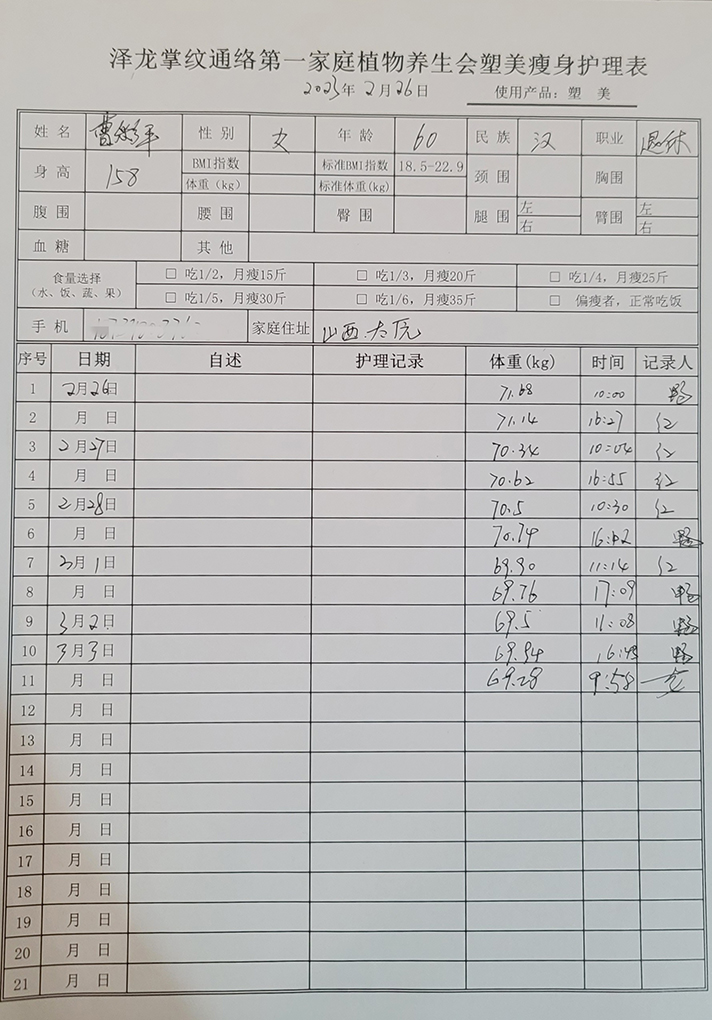 泽龙掌纹通络第一家庭植物养生会塑美瘦身护理表
2023年2月26日 使用产品：塑 美
姓 名 曹 性 别 女 年 龄 60 民 族 汉 职业 退休
身 高 158 BMI指数 标准BMI指数 18.5-22.9 颈 围 胸围
体重（kg） 标准体重(kg)
腹 围 腰 围 臀 围 腿 围 左 右 臂围 左 右
血 糖 其 他
食量选择 （水、饭、蔬、果） □ 吃1/2，月瘦15斤 □ 吃1/3，月瘦20斤 □ 吃1/4，月瘦25斤
□ 吃1/5，月瘦30斤 □ 吃1/6，月瘦35斤 □ 偏瘦者，正常吃饭
手 机 家庭住址 山西.太原
序号 日期 自述 护理记录 体重(kg) 时间 记录人
1 2月26日 71.68 10:00
2 月 日 71.14 16:27 红
3 2月27日 70.34 10:04 红
4 月 日 70.62 16:55 红
5 2月28日 70.5 10:30 红
6 月 日 70.74 16:02
7 3月1日 69.90 11:14 红
8 月 日 69.76 17:09
9 3月2日 69.5 11:08
10 3月3日 69.94 16:43
11 月 日 69.28 9:58
12 月 日
13 月 日
14 月 日
15 月 日
16 月 日
17 月 日
18 月 日
19 月 日
20 月 日
21 月 日